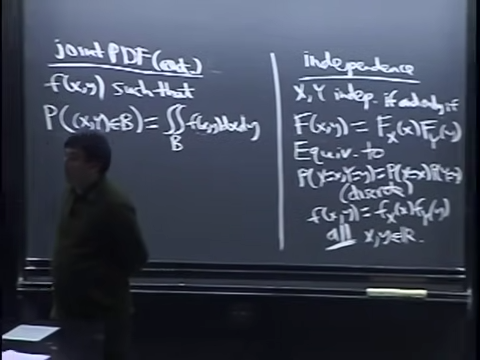 joint PDF (cont.)
f(x,y) such that
P((X,Y)∈B) = ∬_B f(x,y)dxdy
independence
X, Y indep. if and only if
F(x,y) = F_X(x)F_Y(y)
Equiv. to
P(X=x,Y=y) = P(X=x)P(Y=y)
(discrete)
f(x,y) = f_X(x)f_Y(y)
all x,y∈ℝ.